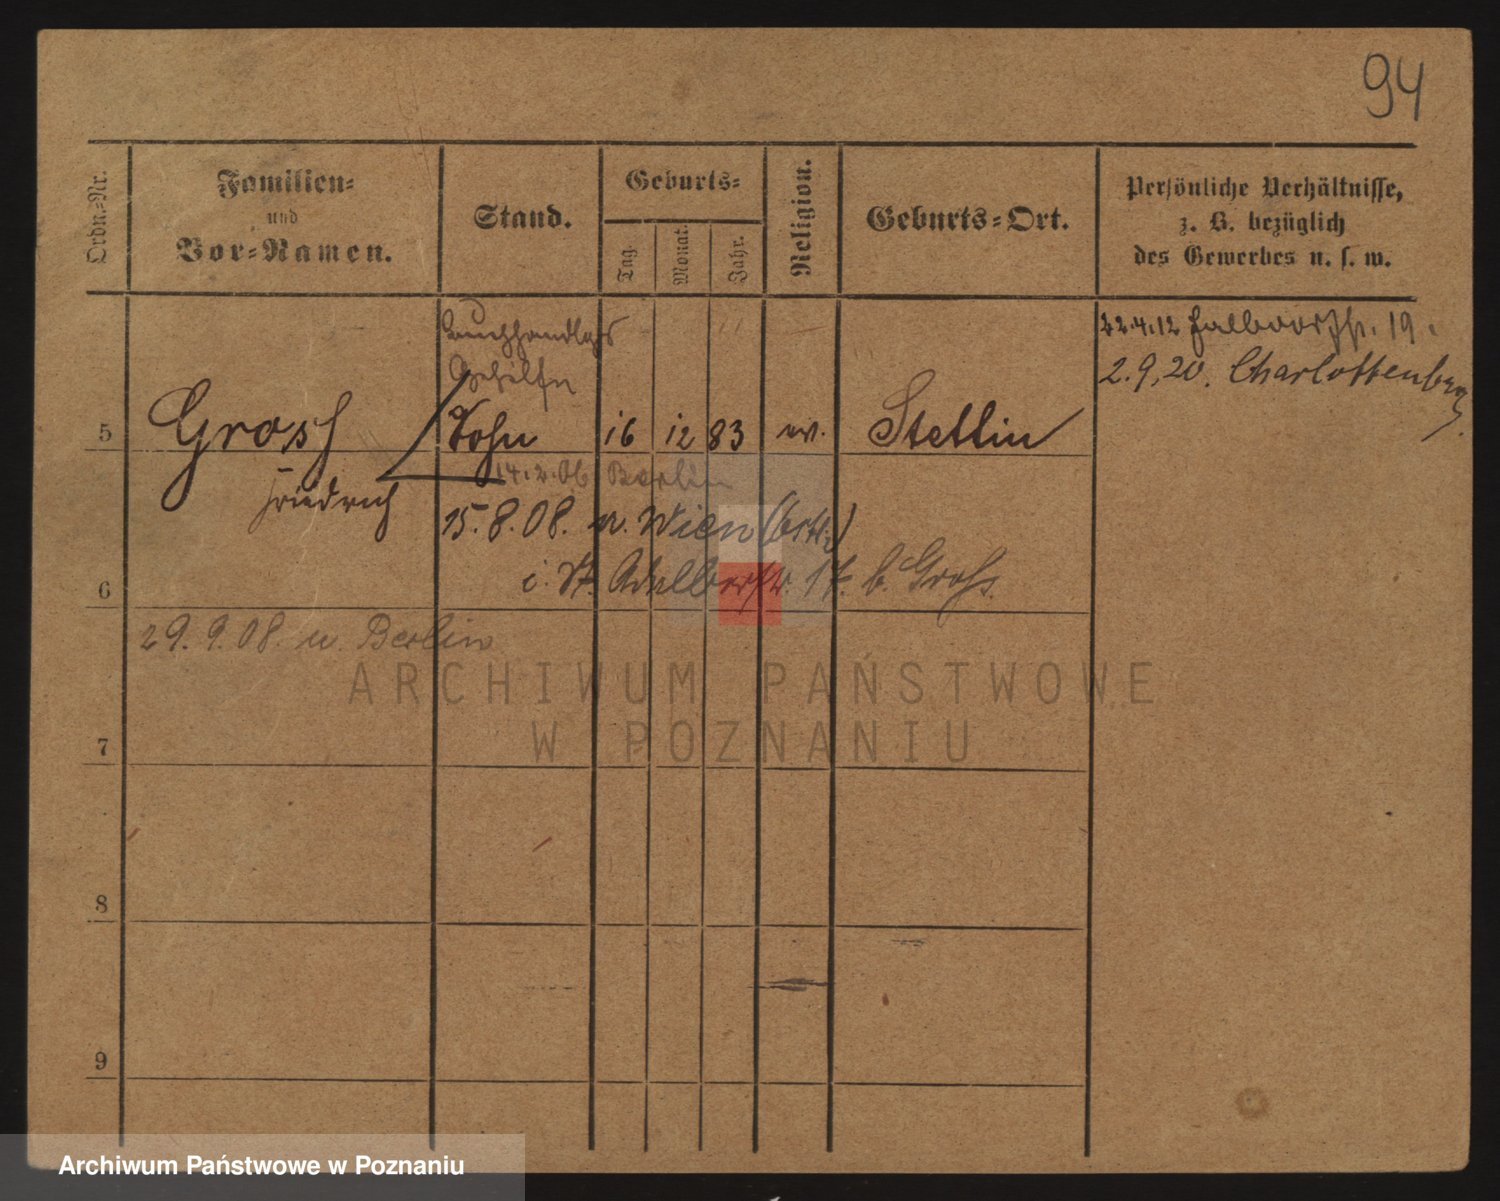 94
Ordn.-Nr.
Familien-
und
Vor-Namen.
Stand.
Geburts-
Tag.
Monat.
Jahr.
Religion.
Geburts-Ort.
Persönliche Verhältnisse,
z. B. bezüglich
des Gewerbes u. s. w.
Buchhandlgs
Gehilfe
22.4.12 19.
2.9.20. Charlottenburg
5 Gross Sohn 16 12 83 ev. Stettin
Friedrich
14.2.06 Berlin
15.8.08. v. Wien
6 i. St. 17. b. Gross.
29.9.08. n. Berlin
ARCHIWUM PAŃSTWOWE
W POZNANIU
7
8
9
Archiwum Państwowe w Poznaniu